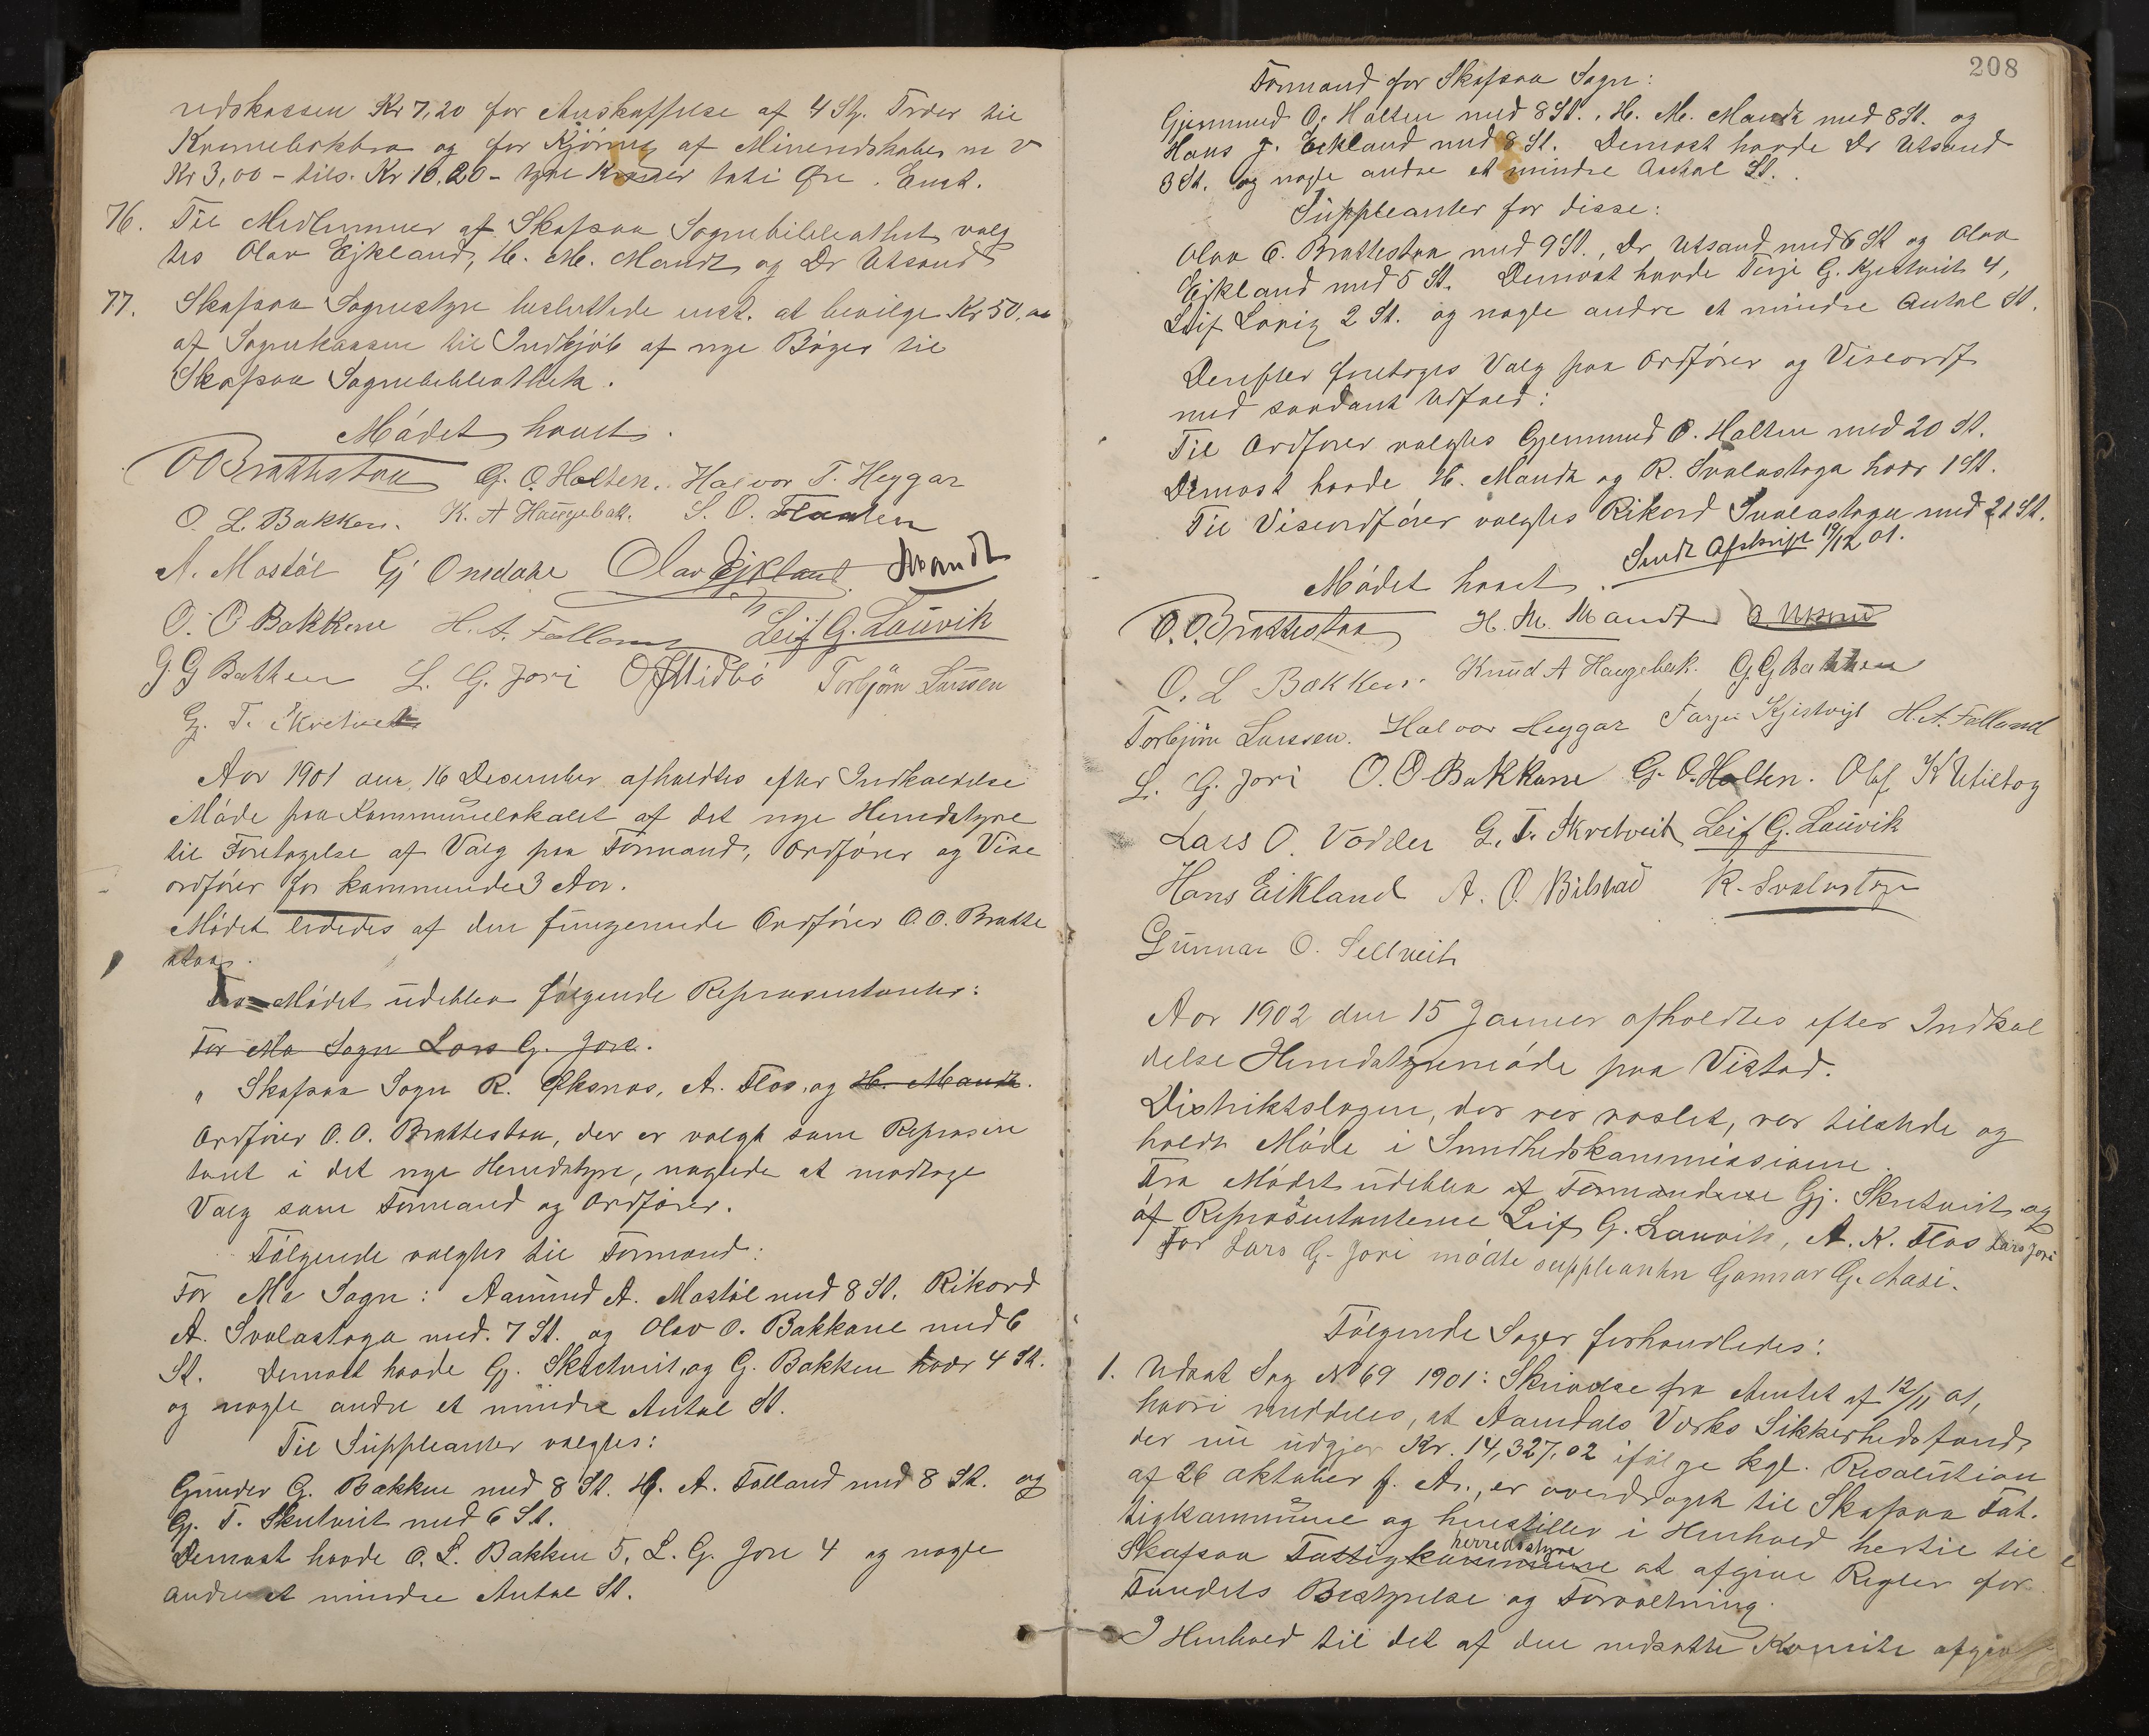 redskassen Kr 7,20 for Anskaffelse af 4 St. Træer til
og for Kjøring af m v
Kr 3,00 - tils. Kr 10,20 - tyve Øre. Enst.
76. Til Medlemmer af Skafsaa Sognebibliothek valg
tes Olav Ejkland, H. M. Mandt og Dr Utsand
77. Skafsaa Sognestyre besluttede enst. at bevilge Kr 50,00
af Sognekassen til Indkjøb af nye Bøger til
Skafsaa Sognebibliothek.
Mødet hævet.
O O Brattestaa G. O. Holten. Halvor T. Heggar
O. L. Bakken. K. A Haugebak. S. O.
A. Mostøl Gj Onsdahl Olav Ejkland Mandt
O. O Bakkene H. A. Folland Leif G. Lauvik
G. G Bakken L. G. Jori O Midbö Torbjörn Larssen
G. T. Skretveit
Aar 1901 den 16 Desember afholdtes efter Indkaldelse
Møde paa Kommunelokalet af det nye Herredstyre
til Foretagelse af Valg paa Formænd, Ordfører og Vise
ordfører for kommende 3 Aar.
Mødet lededes af den fungerende Ordfører O. O. Bratte
staa.
Fra Mødet udeblev følgende Repræsentanter:
For Mo Sogn Lars G. Jore.
" Skafsaa Sogn R. Øksnæs, A. Flos, og H. Mandt.
Ordfører O. O. Brattestaa, der er valgt som Repræsen
tant i det nye Herredstyre, nægtede at modtage
Valg som Formand og Ordfører.
Følgende valgtes til Formænd:
For Mo Sogn: Aamund A. Mostøl med 8 St. Rikard
A. Svalastoga med 7 St. og Olav O. Bakkane med 6
St. Dernæst havde Gj. Skretveit og G. Bakken hver 4 St.
og nogle andre et mindre Antal St.
Til Suppleanter valgtes:
Gunder G. Bakken med 8 St. H. A. Folland med 8 St. og
Gj. T. Skretveit med 6 St.
Dernæst havde O. L. Bakken 5, L. G. Jore 4 og nogle
andre et mindre Antal St.
208
Formænd for Skafsaa Sogn:
Gjermund O. Holten med 8 St., H. M. Mandt med 8 St. og
Hans J. Eekland med 8 St. Dernæst havde Dr Utsand
3 St. og nogle andre et mindre Antal St.
Suppleanter for disse:
Olav O. Brattestaa med 9 St., Dr Utsand med 6 St og Olav
Ejkland med 5 St. Dernæst havde Terje G. Kjestveit 4,
Leif Lovig 2 St. og nogle andre et mindre Antal St.
Derefter foretoges Valg paa Ordfører og Viseordf
med saadant Udfald:
Til Ordfører valgtes Gjermund O. Holten med 20 St.
Dernæst havde H. Mandt og R. Svalastoga hver 1 St.
Til Viseordfører valgtes Rikard Svalastoga med 21 St.
Sendt Afskrift 19/12 01.
Mødet hævet.
O. O. Brattestaa H. M. Mandt O. Utsand
O. L Bakken. Knud A Haugebak. G. G Bakken
Torbjörn Larssen. Halvor Heggar Tarjei Kjistvigt H. A. Folland
L. G. Jori O. O Bakkane G. O. Holten. Olaf K Utistog
Lars O. Vadder G. T. Skretveit Leif G. Lauvik
Hans Eikland A. O. Bilstad R. Svalastoga
Gunnar O. Sellveit
Aar 1902 den 15 Januer afholdtes efter Indkal
delse Herredstyremøde paa Vistad.
Distriktslægen, der var varslet, var tilstede og
holdt Møde i Sundhedskommissionen.
Fra Mødet udeblev af Formændene Gj. Skretveit og
af Repræsentanterne Leif G. Lauvik, A. K. Flos Lars Jori
For Lars G. Jori mødte suppleanten Gunnar G. Aasi.
Følgende Sager forhandledes:
1. Udsat Sag No 69 1901: Skrivelse fra Amtet af 12/11 01,
hvori meddeles, at Aamdals Værks Sikkerhedsfond,
der nu udgjør Kr. 14,327,02 ifølge kgl. Resolution
af 26 Oktober f. A., er overdraget til Skafsaa Fat-
tigkommune og henstilles i Henhold hertil til
Skafsaa Fattigkommune herredsstyre at afgive Regler for
Fondets Bestyrelse og Forvaltning.
I Henhold til det af den nedsatte Komite afgiv